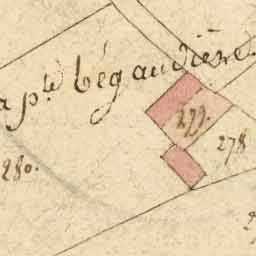 la p.te bégaudière.
277.
278
280.